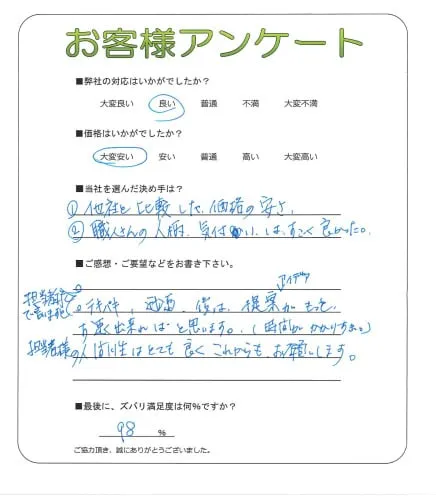 お客様アンケート
■弊社の対応はいかがでしたか？
大変良い 良い 普通 不満 大変不満
■価格はいかがでしたか？
大変安い 安い 普通 高い 大変高い
■当社を選んだ決め手は？
① 他社と比較した、価格の安さ、
② 職人さんの人柄、気付かい、は、すごく良かった。
■ご感想・ご要望などをお書き下さい。
アイデア
待ち、計画、後は、提案がもっと
出来ればと思います。(時間がかかりすぎ。)
担当者様の人間性はとても良くこれからもお願いします。
■最後に、ズバリ満足度は何％ですか？
98 %
ご協力頂き、誠にありがとうございました。